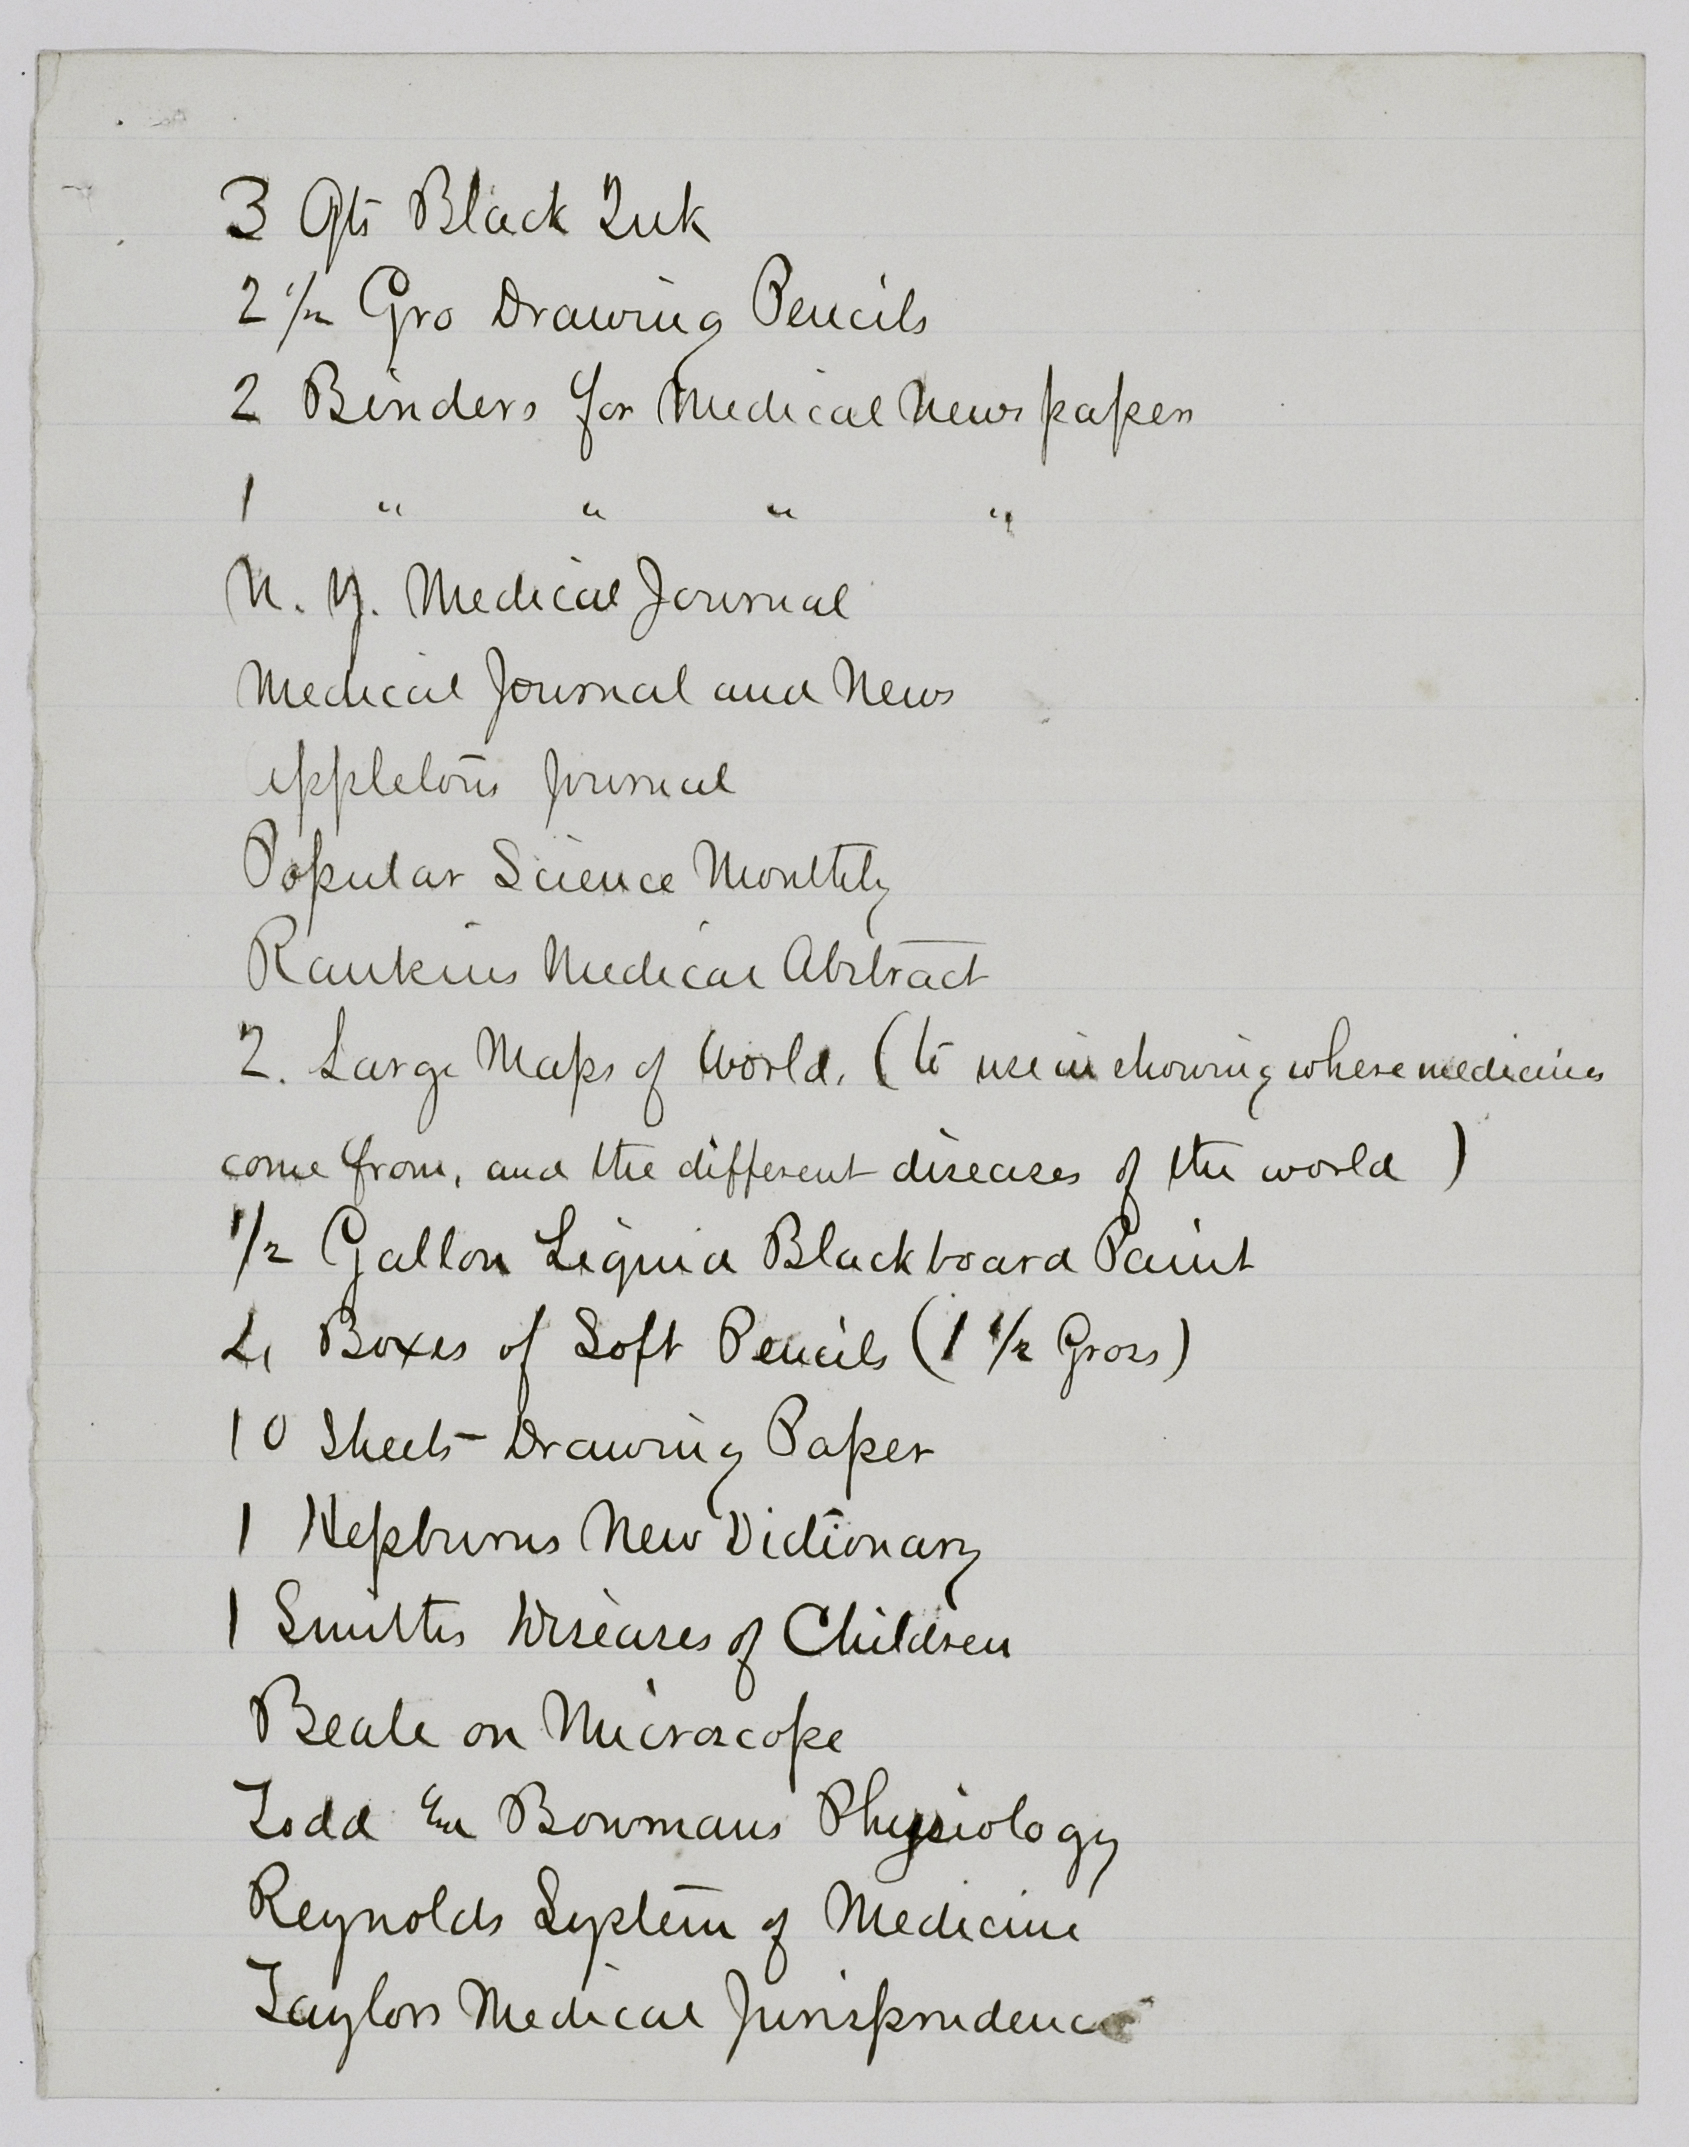 3 Qts Black Ink
2 1/2 Gro Drawing Pencils
2 Binders for Medical Newspapers
1 " " " "
N. Y. Medical Journal
Medical Journal and News
Appletons Journal
Popular Science Monthly
Rankins Medical Abstract
2. Large Maps of World. (to use in showing where medicines
come from, and the different diseases of the world)
1/2 Gallon Liquid Blackboard Paint
Boxes of Soft Pencils (1 1/2 Gross)
10 Sheets Drawing Paper
1 Hepburns New Dictionary
1 Smiths Diseases of Children
Beale on Microscope
Todd & Bowmans Physiology
Reynolds System of Medicine
Taylors Medical Jurisprudence